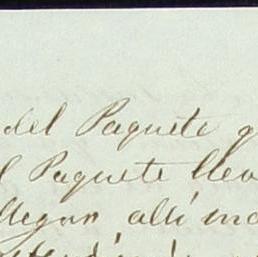 del Paquete q
l Paquete lleva
llegan alli ma